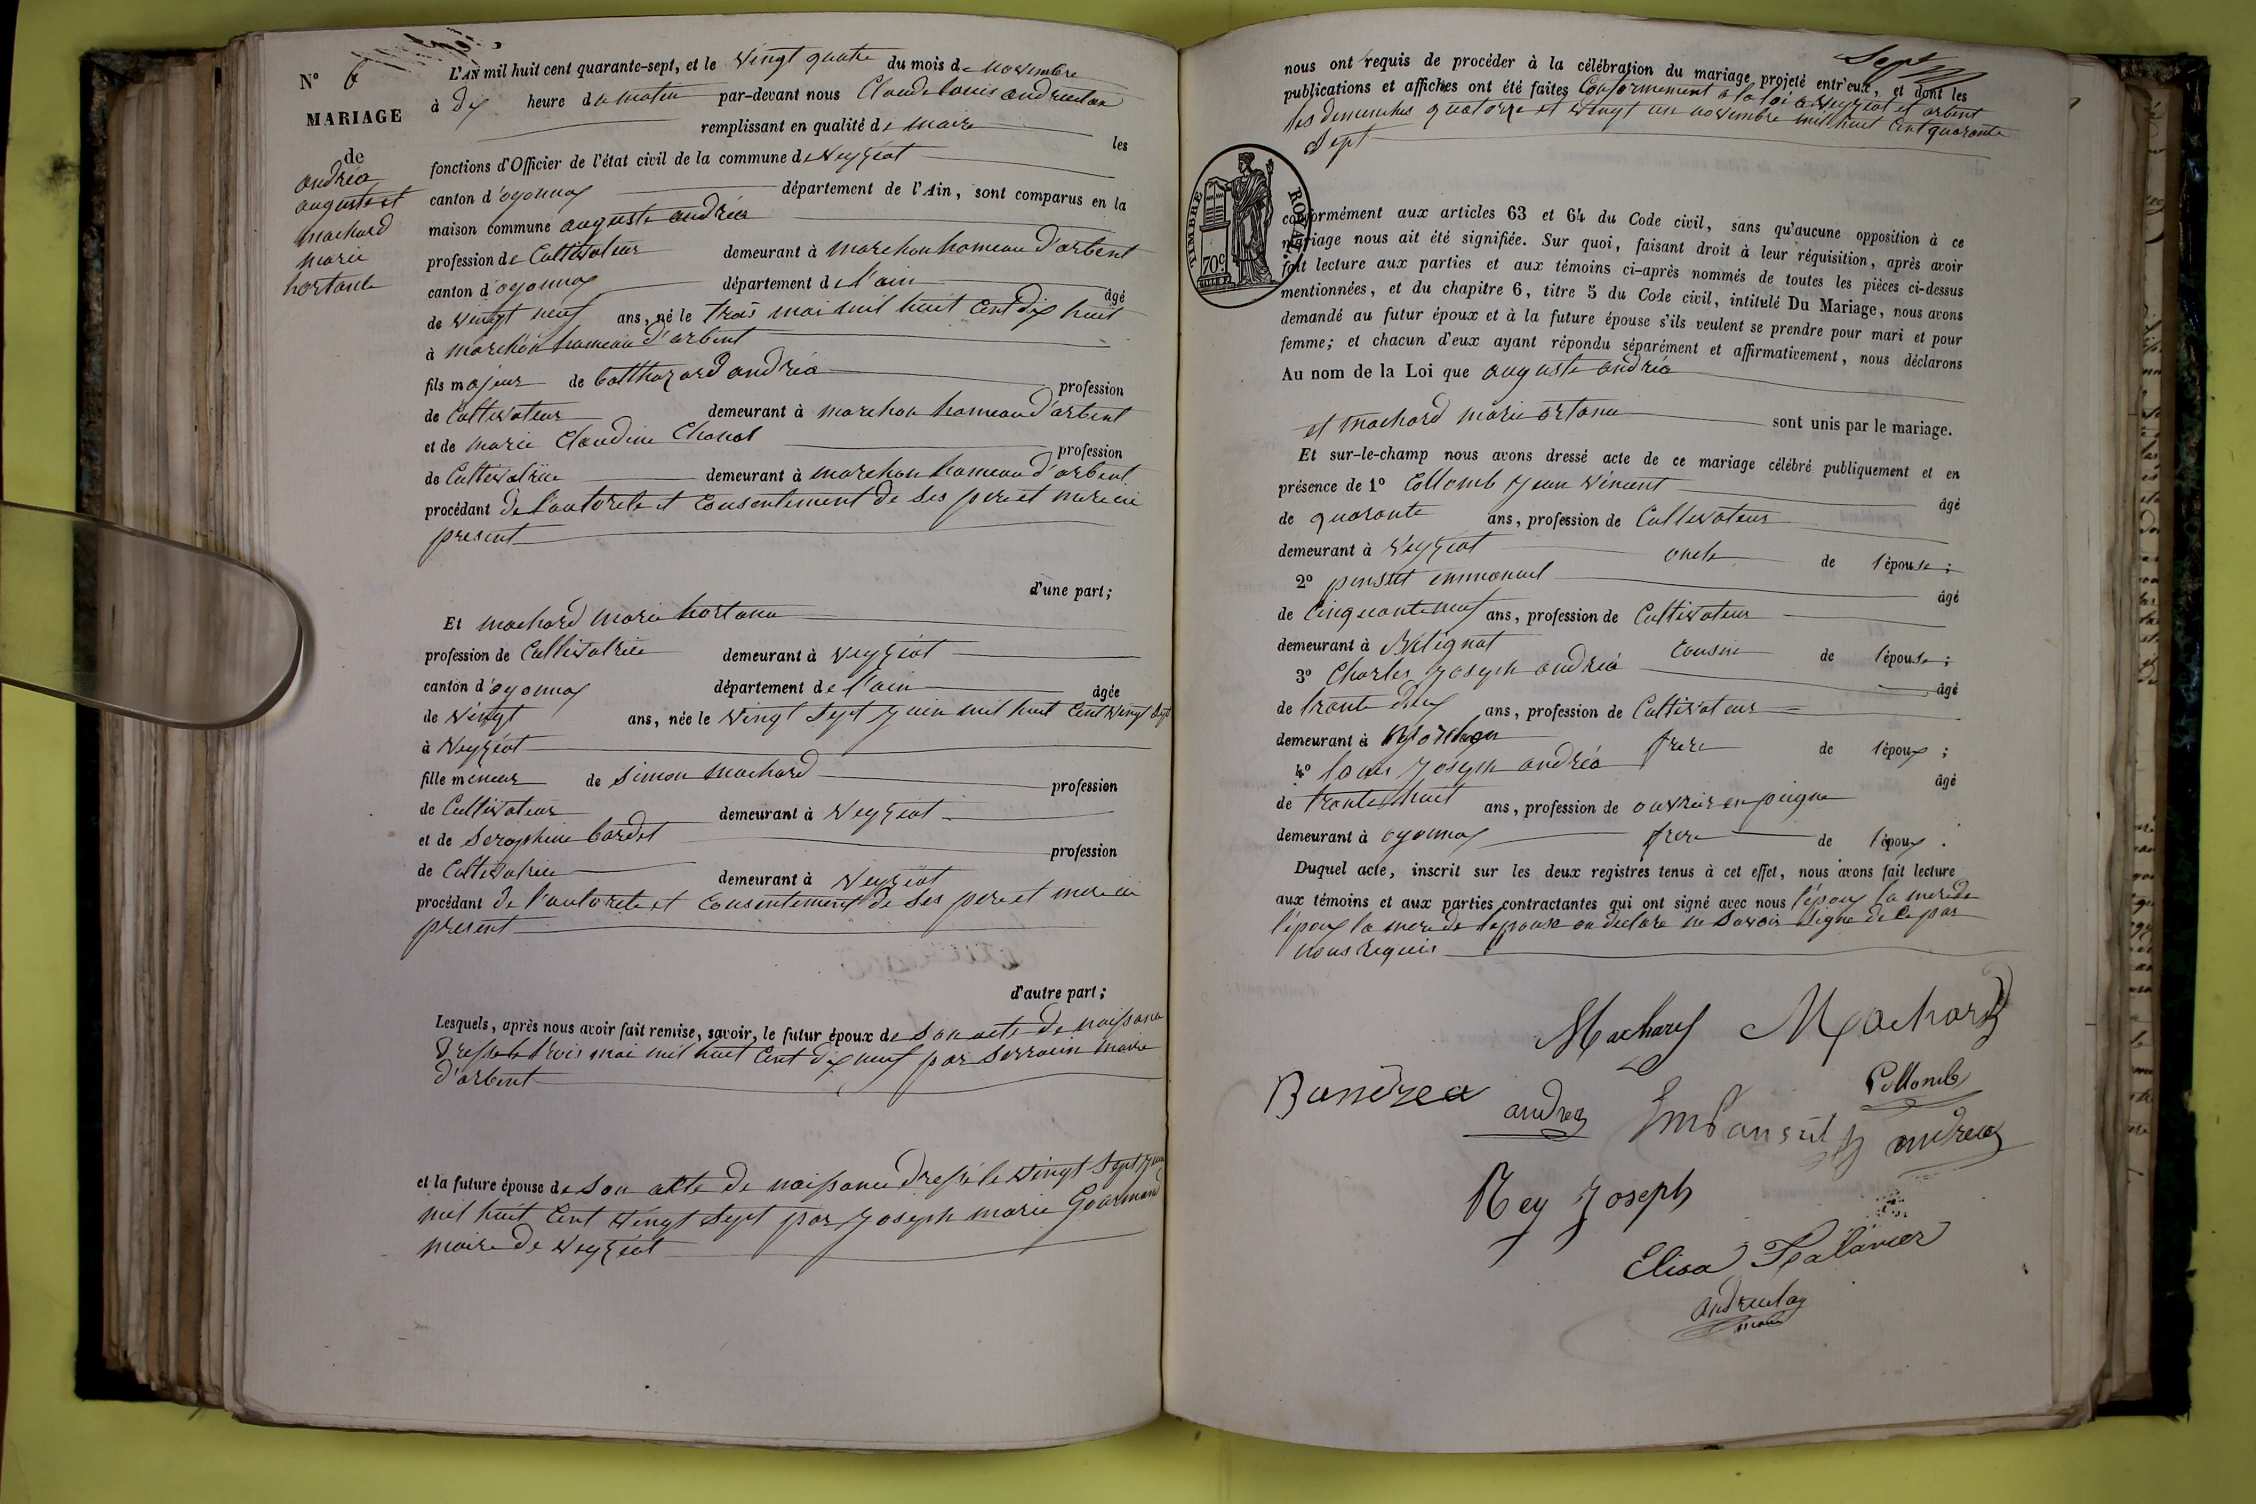 N° 6
MARIAGE
de
andréa
auguste et
machard
marie
hortance
L'AN mil huit cent quarante-sept, et le vingt quatre du mois de novembre
à dix heure du matin par-devant nous Claude louis andruetan
remplissant en qualité de maire les
fonctions d'Officier de l'état civil de la commune de veyziat
canton d'oyonnax département de l'Ain, sont comparus en la
maison commune auguste andréa
profession de Cultivateur demeurant à marchon hameau d'arbent
canton d'oyonnax département de l'ain âgé
de vingt neuf ans, né le trois mai mil huit cent dix huit
à marchon hameau d'arbent
fils majeur de balthazard andréa profession
de Cultivateur demeurant à marchon hameau d'arbent
et de marie Claudine Chanal profession
de Cultivatrice demeurant à marchon hameau d'arbent
procédant de l'autorite et consentement de ses pere et mere ici
present
d'une part;
Et machard marie hortance
profession de Cultivatrice demeurant à veyziat
canton d'oyonnax département de l'ain âgée
de vingt ans, née le vingt sept juin mil huit cent vingt sept
à veyziat
fille mineur de simon machard profession
de Cultivateur demeurant à veyziat
et de seraphine bardet profession
de Cultivatrice demeurant à veyziat
procédant de l'autorite et consentement de ses pere et mere ici
present
d'autre part;
Lesquels, après nous avoir fait remise, savoir, le futur époux de son acte de naissance
dressé le trois mai mil huit cent dix neuf par serrasin maire
d'arbent
et la future épouse de son acte de naissance dressé le vingt sept juin
mil huit cent vingt sept par joseph marie Gourmand
maire de veyziat
sept
nous ont requis de procéder à la célébration du mariage projeté entr'eux, et dont les
publications et affiches ont été faites Conformement a la loi a veyziat et arbent
les dimenches quatorze et vingt un novembre mil huit cent quarante
sept
TIMBRE ROYAL.
70c
conformément aux articles 63 et 64 du Code civil, sans qu'aucune opposition à ce
mariage nous ait été signifiée. Sur quoi, faisant droit à leur réquisition, après avoir
fait lecture aux parties et aux témoins ci-après nommés de toutes les pièces ci-dessus
mentionnées, et du chapitre 6, titre 5 du Code civil, intitulé Du Mariage, nous avons
demandé au futur époux et à la future épouse s'ils veulent se prendre pour mari et pour
femme; et chacun d'eux ayant répondu séparément et affirmativement, nous déclarons
Au nom de la Loi que auguste andréa
et machard marie ortance sont unis par le mariage.
Et sur-le-champ nous avons dressé acte de ce mariage célébré publiquement et en
présence de 1° Collomb jean vincent âgé
de quarante ans, profession de Cultivateur
demeurant à veyziat oncle de l'épouse;
2° ponsut emmanuel âgé
de Cinquante neuf ans, profession de Cultivateur
demeurant à Belignat Cousin de l'épouse;
3° Charles joseph andréa âgé
de trente deux ans, profession de Cultivateur
demeurant à marchon frere de l'époux;
4° louis joseph andréa âgé
de trente huit ans, profession de ouvrier en peigne
demeurant à oyonnax frere de l'époux.
Duquel acte, inscrit sur les deux registres tenus à cet effet, nous avons fait lecture
aux témoins et aux parties contractantes qui ont signé avec nous l'époux la mere de
l'époux la mere de l'epouse on declare ne savoir signe de ce par
nous requis
Machard Machard
Collomb
Bandrea andrea Em Ponsut andrea
Rey Joseph
Elisa Talavier
andruetan
maire